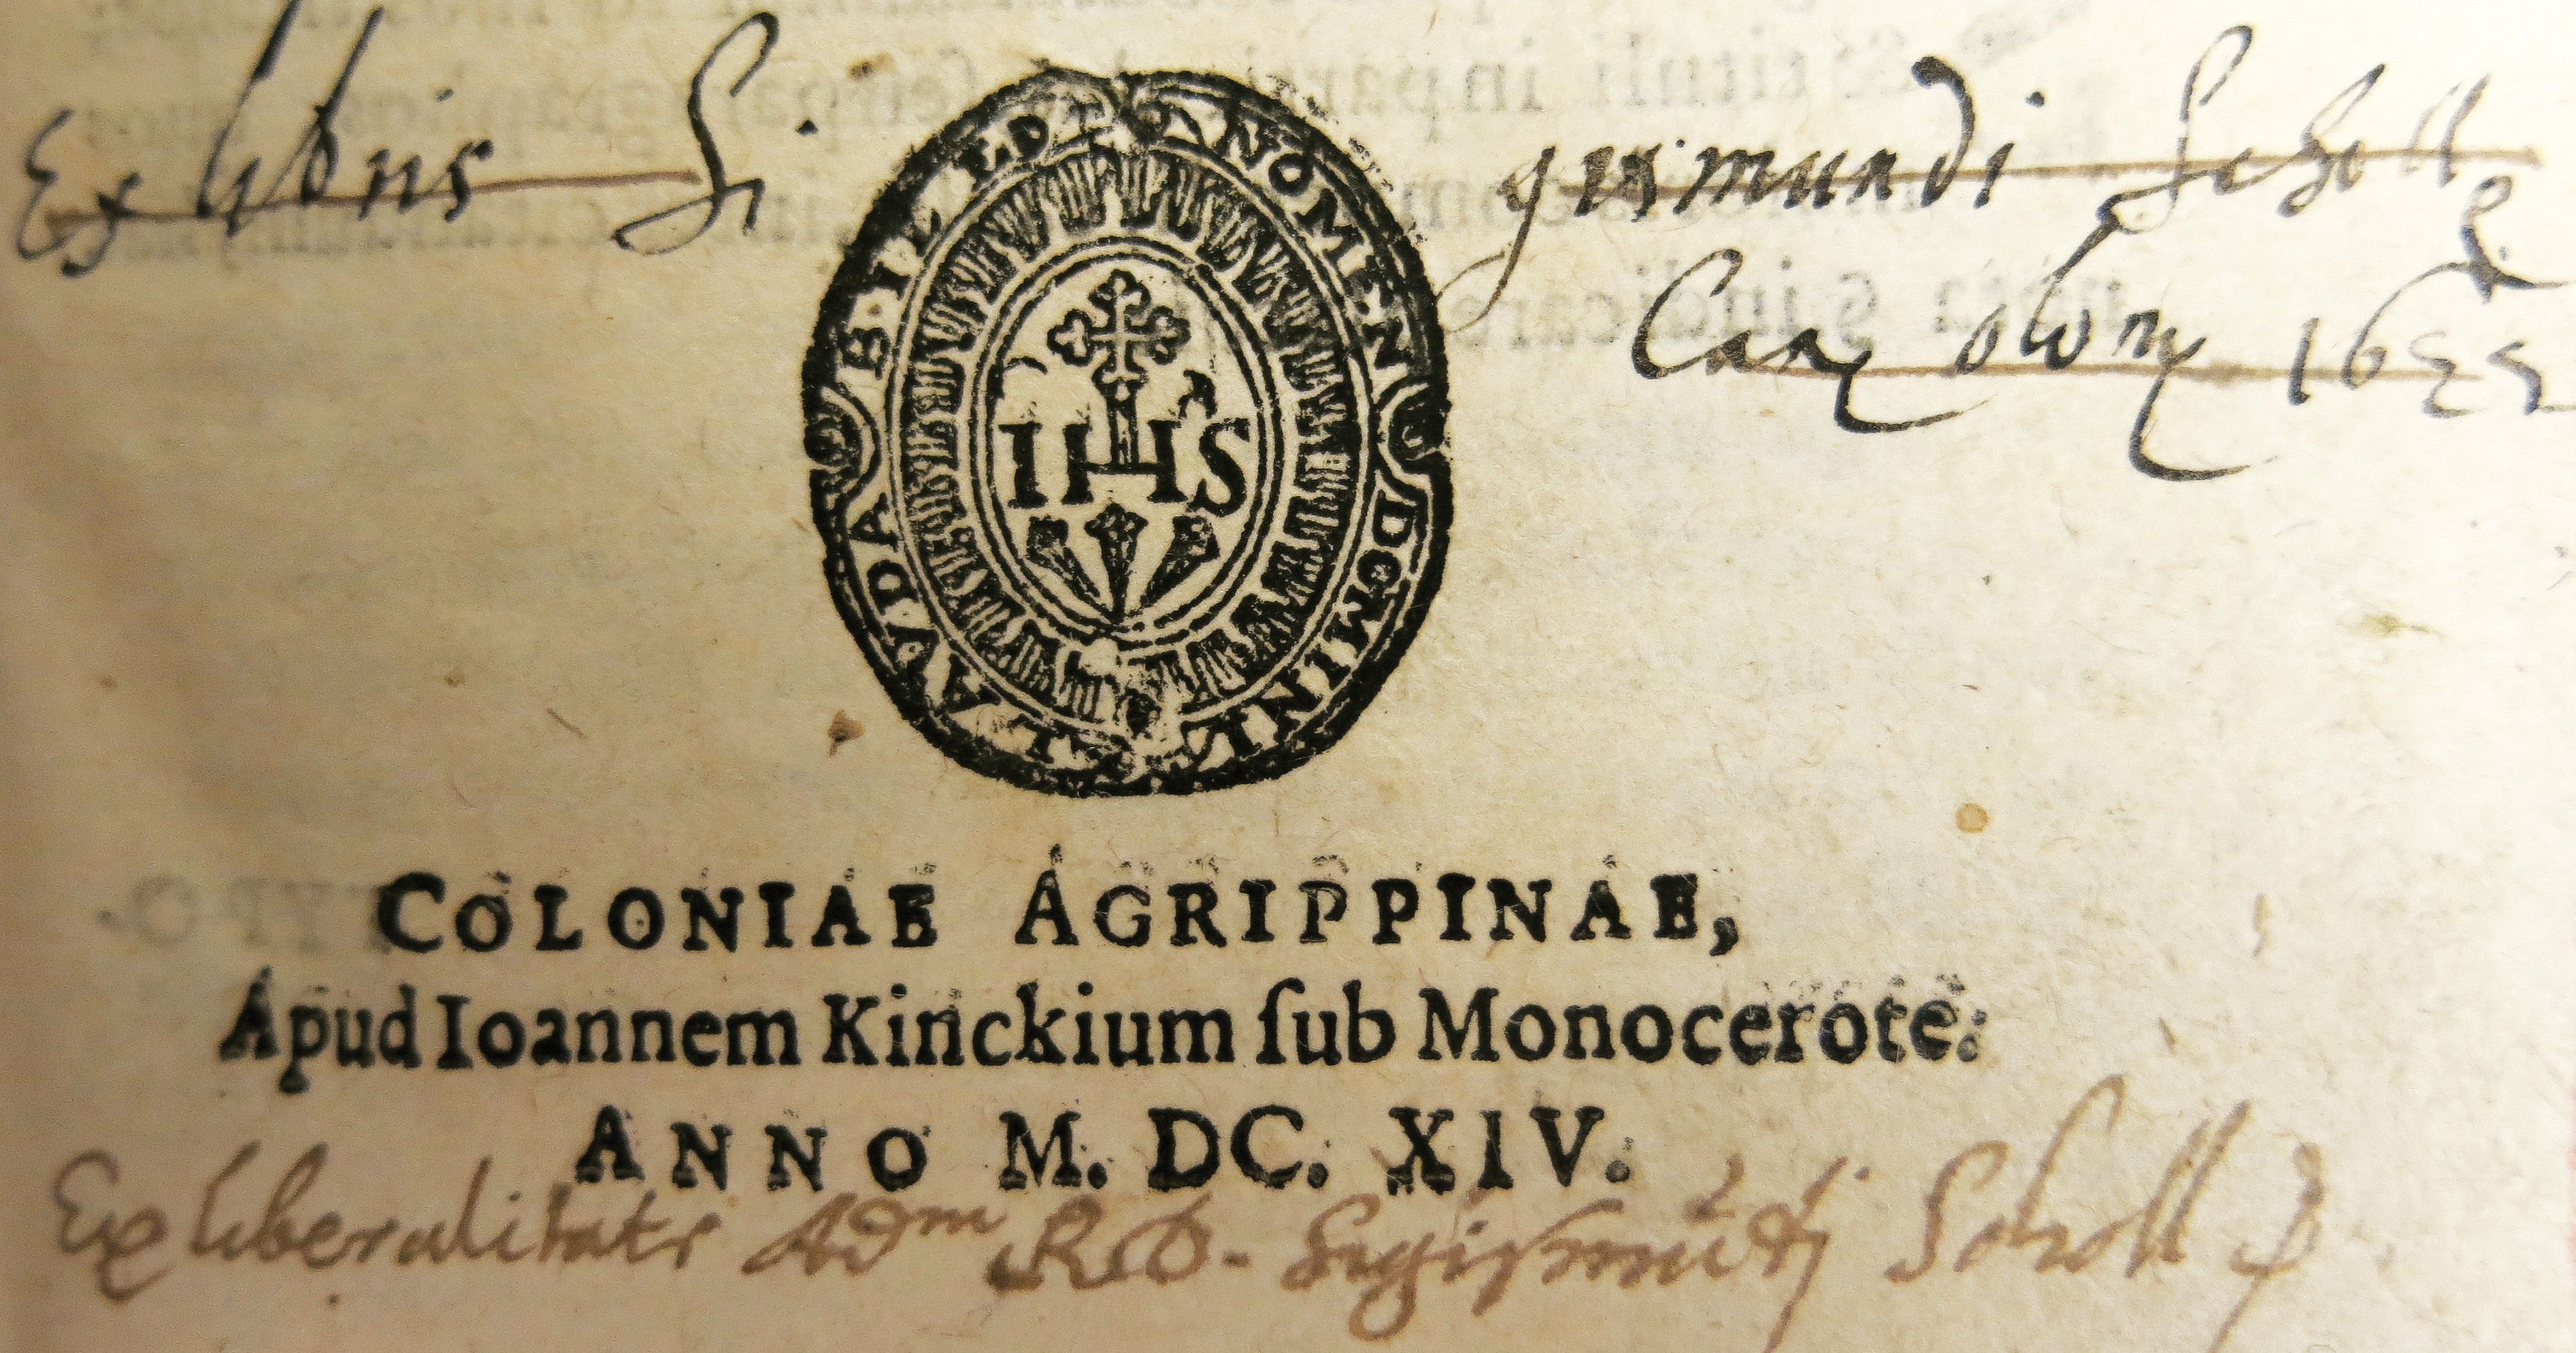 Ex libris Sigismundi Scholl
Can olom 1622
NOMEN DOMINI LAVDABILE
IHS
COLONIAE AGRIPPINAE,
Apud Ioannem Kinckium ſub Monocerote.
ANNO M. DC. XIV.
Ex liberalitate Adm R D. Sigiſmūdj Scholl